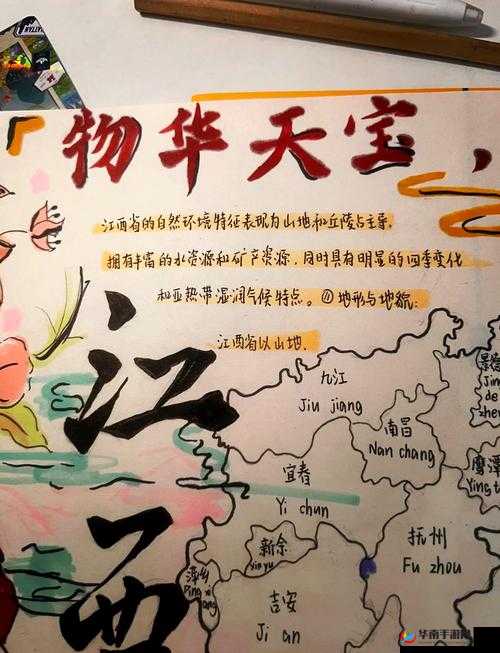 物华天宝，
江西省的自然环境特征表现为山地和丘陵占主要.
拥有丰富的水资源和矿产资源，同时具有明显的四季变化
和亚热带湿润气候特点。①地形与地貌：
江西省以山地.
江西
九江
Jiu jiang
南昌
Nan chang
景德
Jing
de
zhen
鹰潭
Ying tan
宜春
Yi chun
新余
xin yu
萍乡
Ping xiang
抚州
Fu zhou
吉安
Ji an
华南手游网